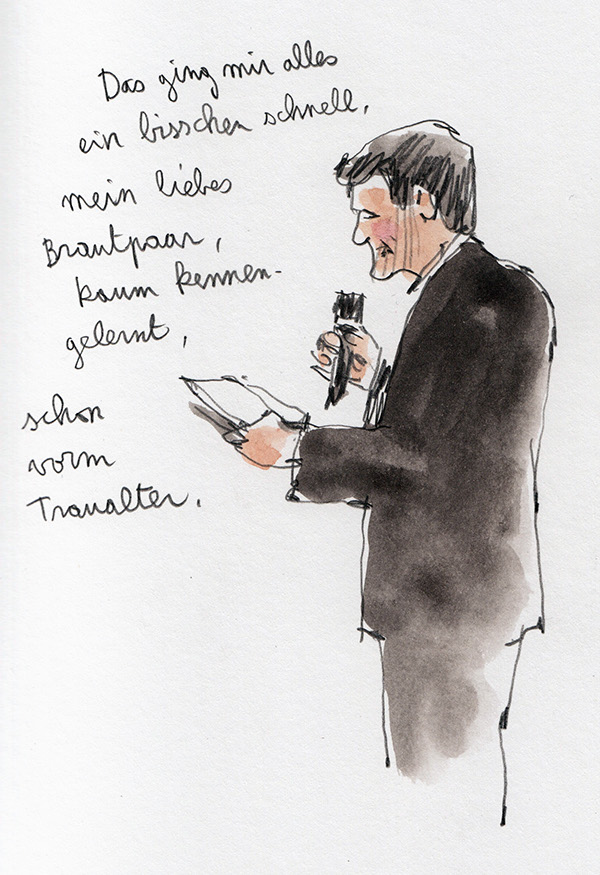 Das ging mir alles
ein bisschen schnell,
mein liebes
Brautpaar,
kaum kennen-
gelernt,
schon
vorm
Traualter.